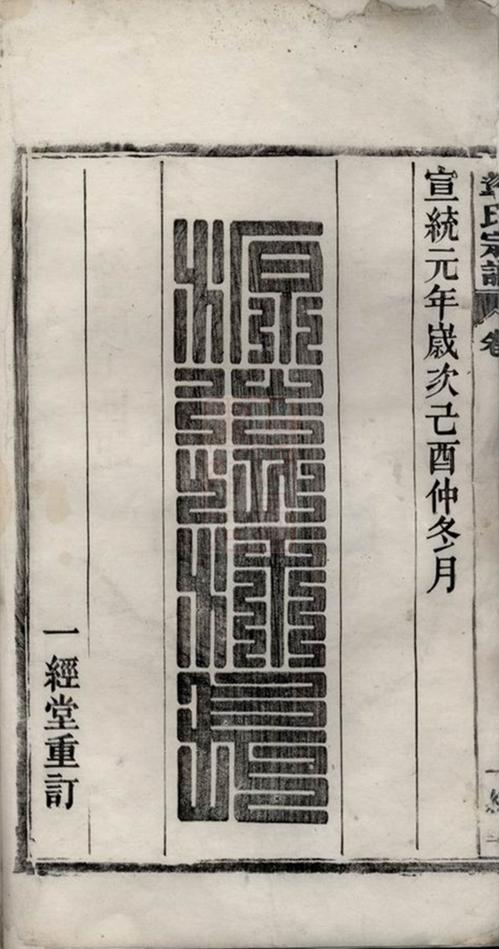 氏宗譜 卷
宣統元年歲次己酉仲冬月
源遠
一經堂重訂